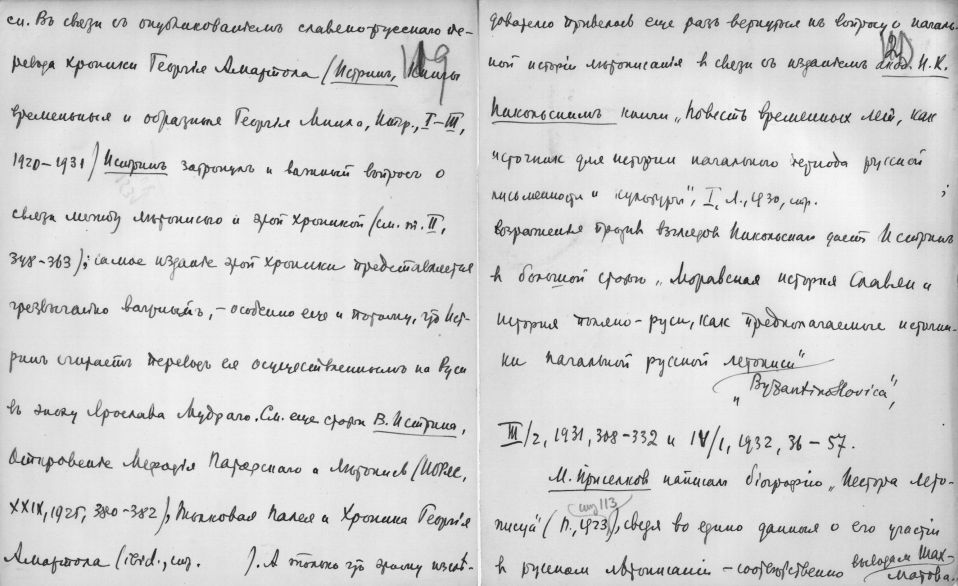 см. Въ связи съ опубликованiемъ славено-русскаго пе-
119
ревода хроники Георгiя Амартола (Истринъ, Книги
временныя и образныя Георгiя Мниха, Петр., I–III,
1920–1931) Истринъ затронулъ и важный вопросъ о
связи между лѣтописью и этой хроникой (см. т. II,
348–363); самое изданiе этой хроники представляется
чрезвычайно важнымъ, – особенно еще и потому, что Ист-
ринъ считаетъ переводъ ея осуществленнымъ на Руси
въ эпоху Ярослава Мудраго. См. еще статьи В. Истрина,
Откровенiе Мефодiя Патарскаго и Лѣтопись (Извѣс,
XXIX, 1925, 380–382); Толковая Палея и Хроника Георгiя
Амартола (ibid., стр. ). А только что этому изслѣ-
дователю привелось еще разъ вернуться къ вопросу о началь-
120
ной исторiи лѣтописанiя въ связи съ изданiемъ акад. Н. К.
Никольскимъ книги „Повесть временных лет, как
источник для истории начального периода русской
письменности и культуры", I, Л., 1930, стр. ;
возраженья против взглядов Никольскаго даетъ Истринъ
в большой статье „Моравская история Славян и
история поляно-руси, как предполагаемые источни-
ки начальной русской летописи"
„Byzantinoslavica",
III/2, 1931, 308–332 и IV/1, 1932, 36–57.
М. Приселков написал бiографiю „Нестора Лето-
стр 113
писца" (П., 1923), сведя во едино данныя о его участiи
в русском лѣтописанiи – соответственно выводам Шах-
матова.